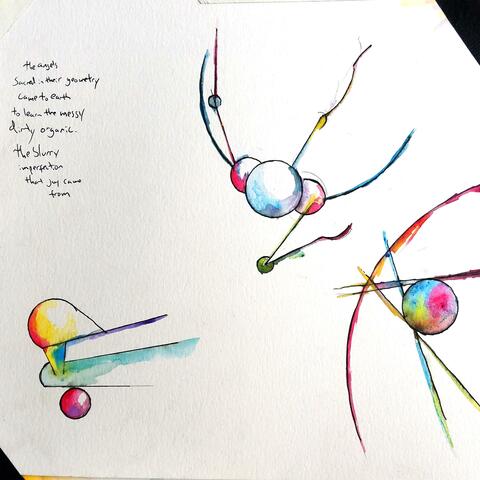 the angels
Sacred in their geometry
came to earth
to learn the messy
dirty organic.
the blurry
imperfection
that joy came
from